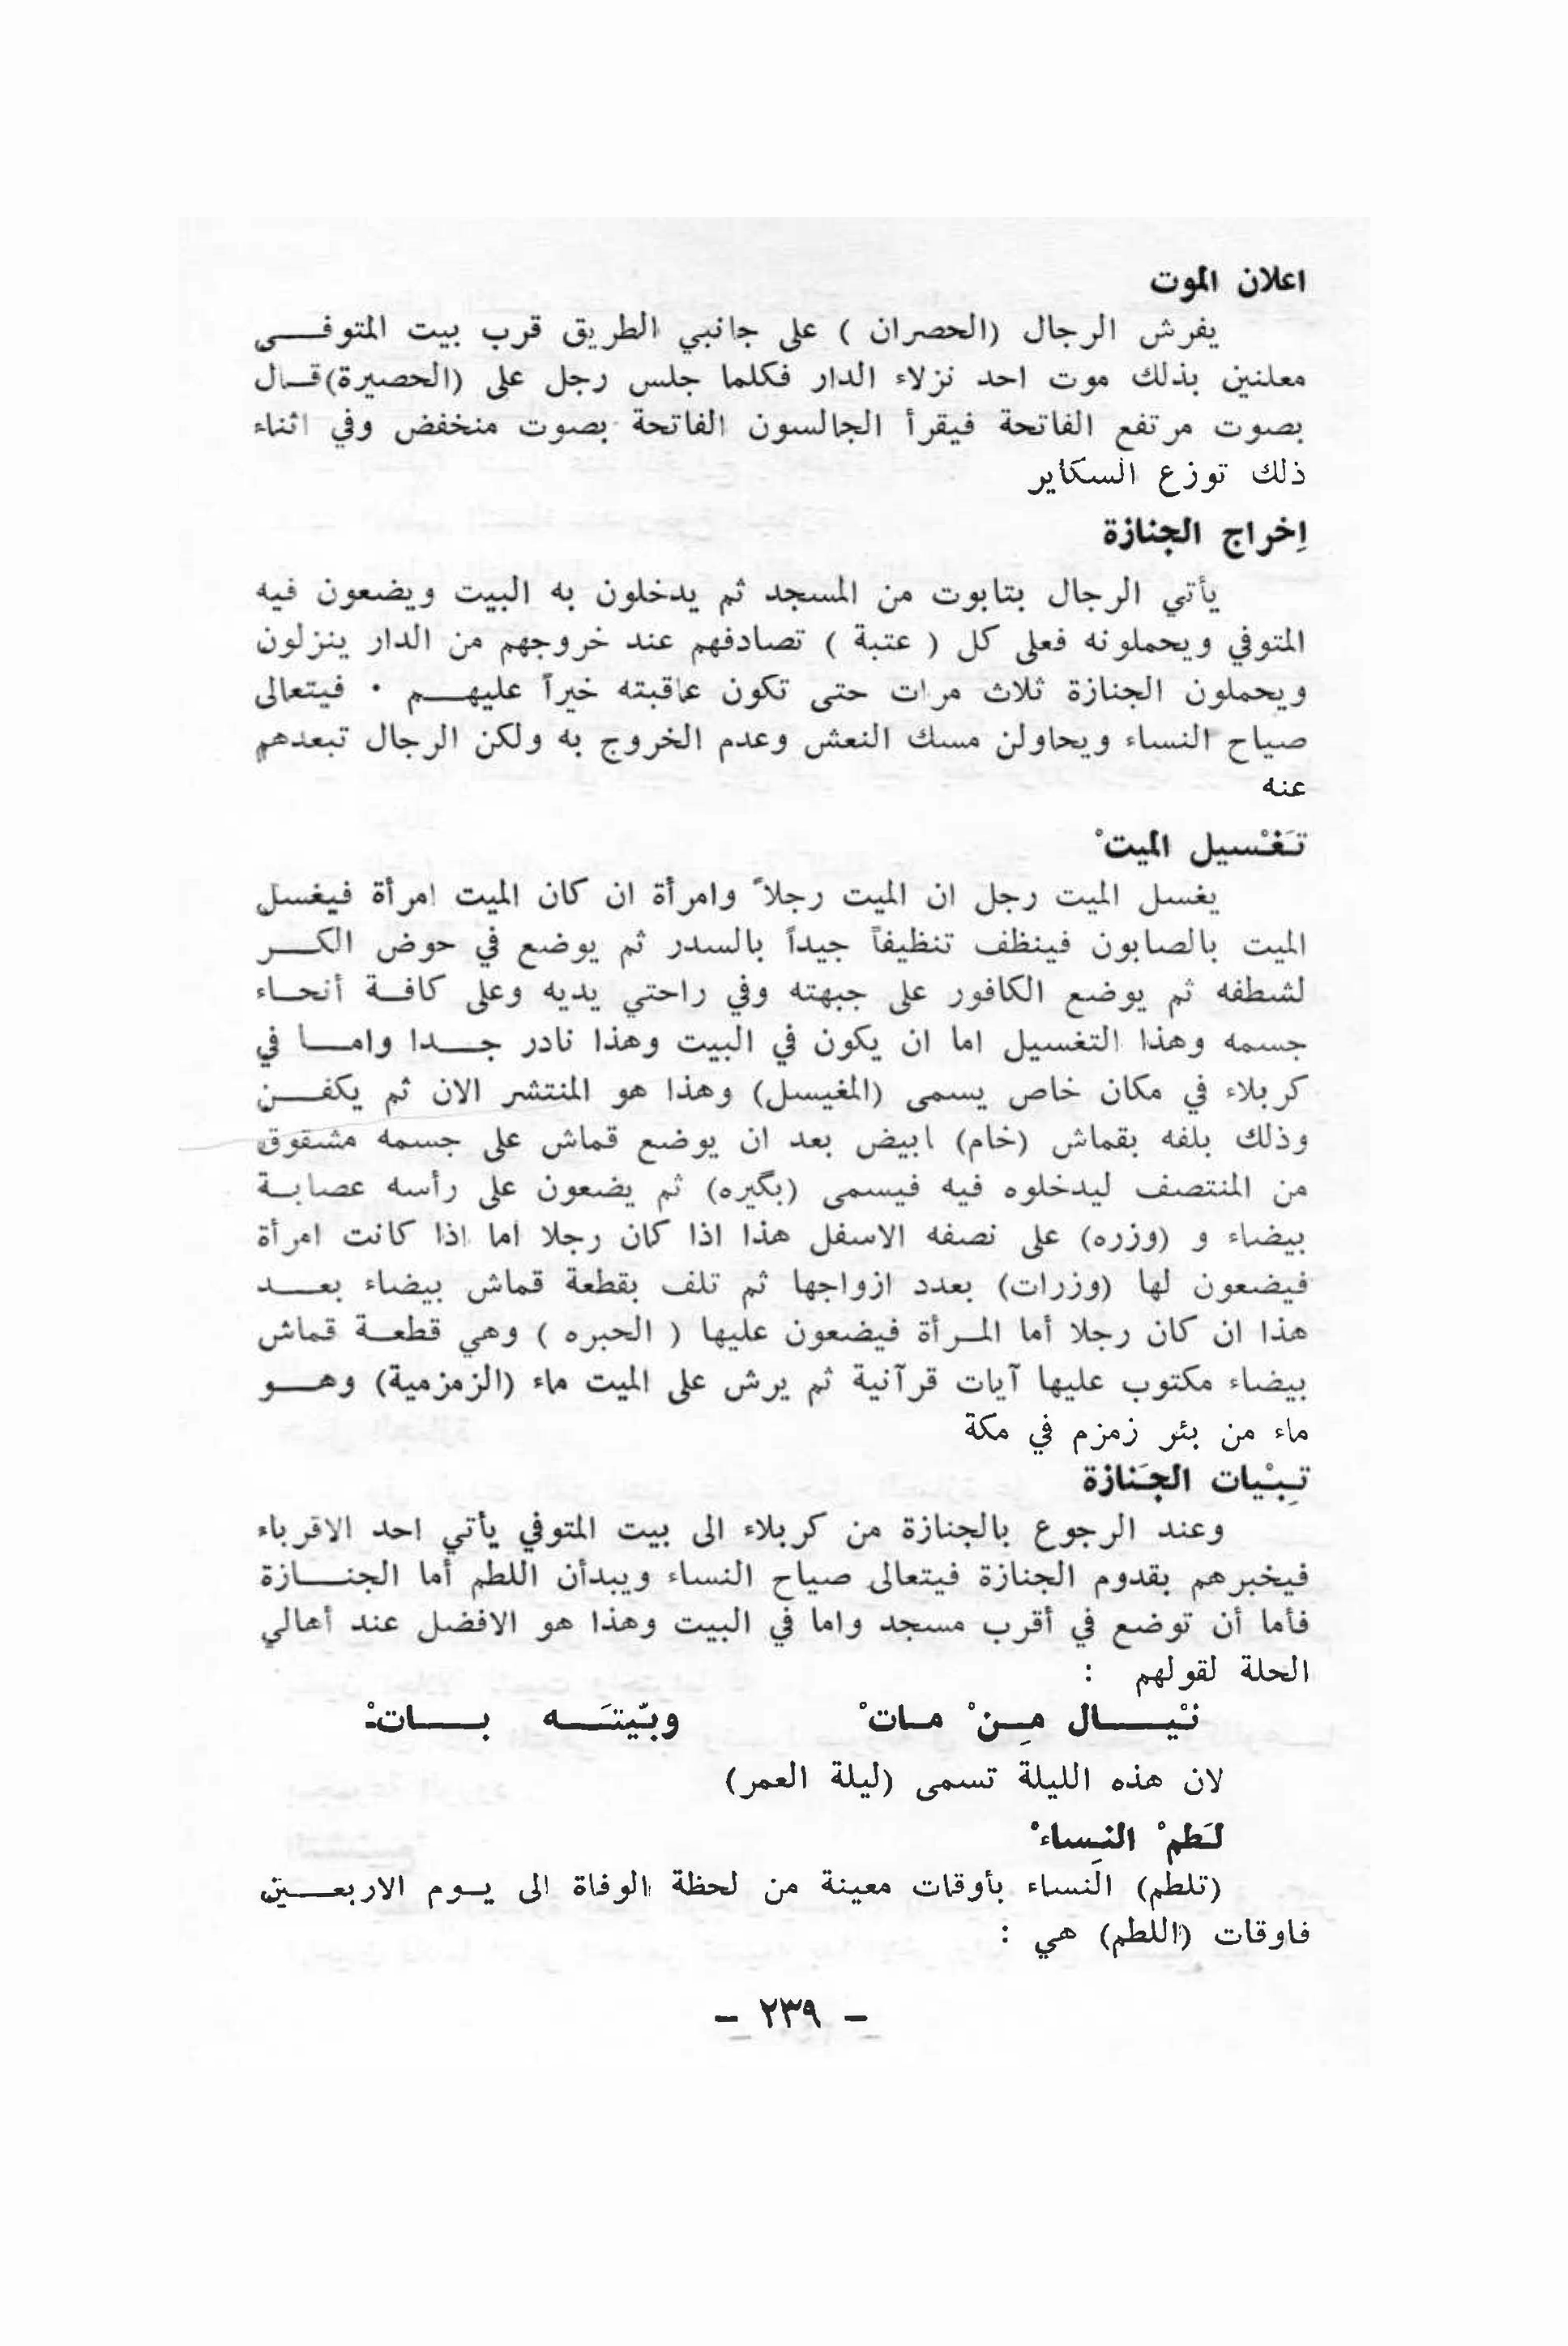 اعلان الموت
يفرش الرجال (الحصران ) على جانبي الطريق قرب بيت المتوفى
معلنين بذلك موت احد نزلاء الدار فكلما جلس رجل على (الحصيرة) قال
بصوت مرتفع الفاتحة فيقرأ الجالسون الفاتحة بصوت منخفض وفي اثناء
ذلك توزع السكاير
اِخراج الجنازة
يأتي الرجال بتابوت من المسجد ثم يدخلون به البيت ويضعون فيه
المتوفي ويحملونه فعلى كل ( عتبة ) تصادفهم عند خروجهم من الدار ينزلون
ويحملون الجنازة ثلاث مرات حتى تكون عاقبته خيراً عليهم ٠ فيتعالى
صياح النساء ويحاولن مسك النعش وعدم الخروج به ولكن الرجال تبعدهم
عنه
تَغْسيل الميتْ
يغسل الميت رجل ان الميت رجلاً وامرأة ان كان الميت امرأة فيغسل
الميت بالصابون فينظف تنظيفاً جيداً بالسدر ثم يوضع في حوض الكر
لشطفه ثم يوضع الكافور على جبهته وفي راحتي يديه وعلى كافة أنحاء
جسمه وهذا التغسيل اما ان يكون في البيت وهذا نادر جدا واما في
كربلاء في مكان خاص يسمى (المغيسل) وهذا هو المنتشر الان ثم يكفن
وذلك بلفه بقماش (خام) ابيض بعد ان يوضع قماش على جسمه مشقوق
من المنتصف ليدخلوه فيه فيسمى (بگيره) ثم يضعون على رأسه عصابة
بيضاء و (وزره) على نصفه الاسفل هذا اذا كان رجلا اما اذا كانت امرأة
فيضعون لها (وزرات) بعدد ازواجها ثم تلف بقطعة قماش بيضاء بعد
هذا ان كان رجلا أما المرأة فيضعون عليها ( الحبره ) وهي قطعة قماش
بيضاء مكتوب عليها آيات قرآنية ثم يرش على الميت ماء (الزمزمية) وهو
ماء من بئر زمزم في مكة
تِبْيات الجَنازة
وعند الرجوع بالجنازة من كربلاء الى بيت المتوفي يأتي احد الاقرباء
فيخبرهم بقدوم الجنازة فيتعالى صياح النساء ويبدأن اللطم أما الجنازة
فأما أن توضع في أقرب مسجد واما في البيت وهذا هو الافضل عند أهالي
الحلة لقولهم :
نْيال مِنْ ماتْ وبّيتَه باتْ
لان هذه الليلة تسمى (ليلة العمر)
لَطمْ النِساءْ
(تلطم) النساء بأوقات معينة من لحظة الوفاة الى يوم الاربعين
فاوقات (اللطم) هي :
– ٢٣٩ –